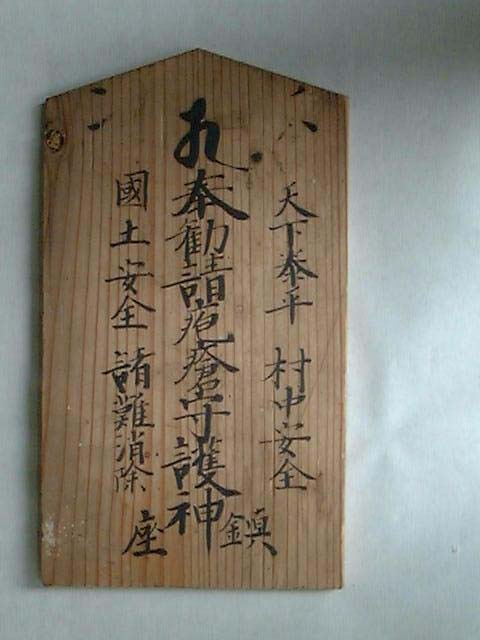 天下泰平 村中安全
奉勸請疱瘡守護神
鎮座
國土安全 諸難消除